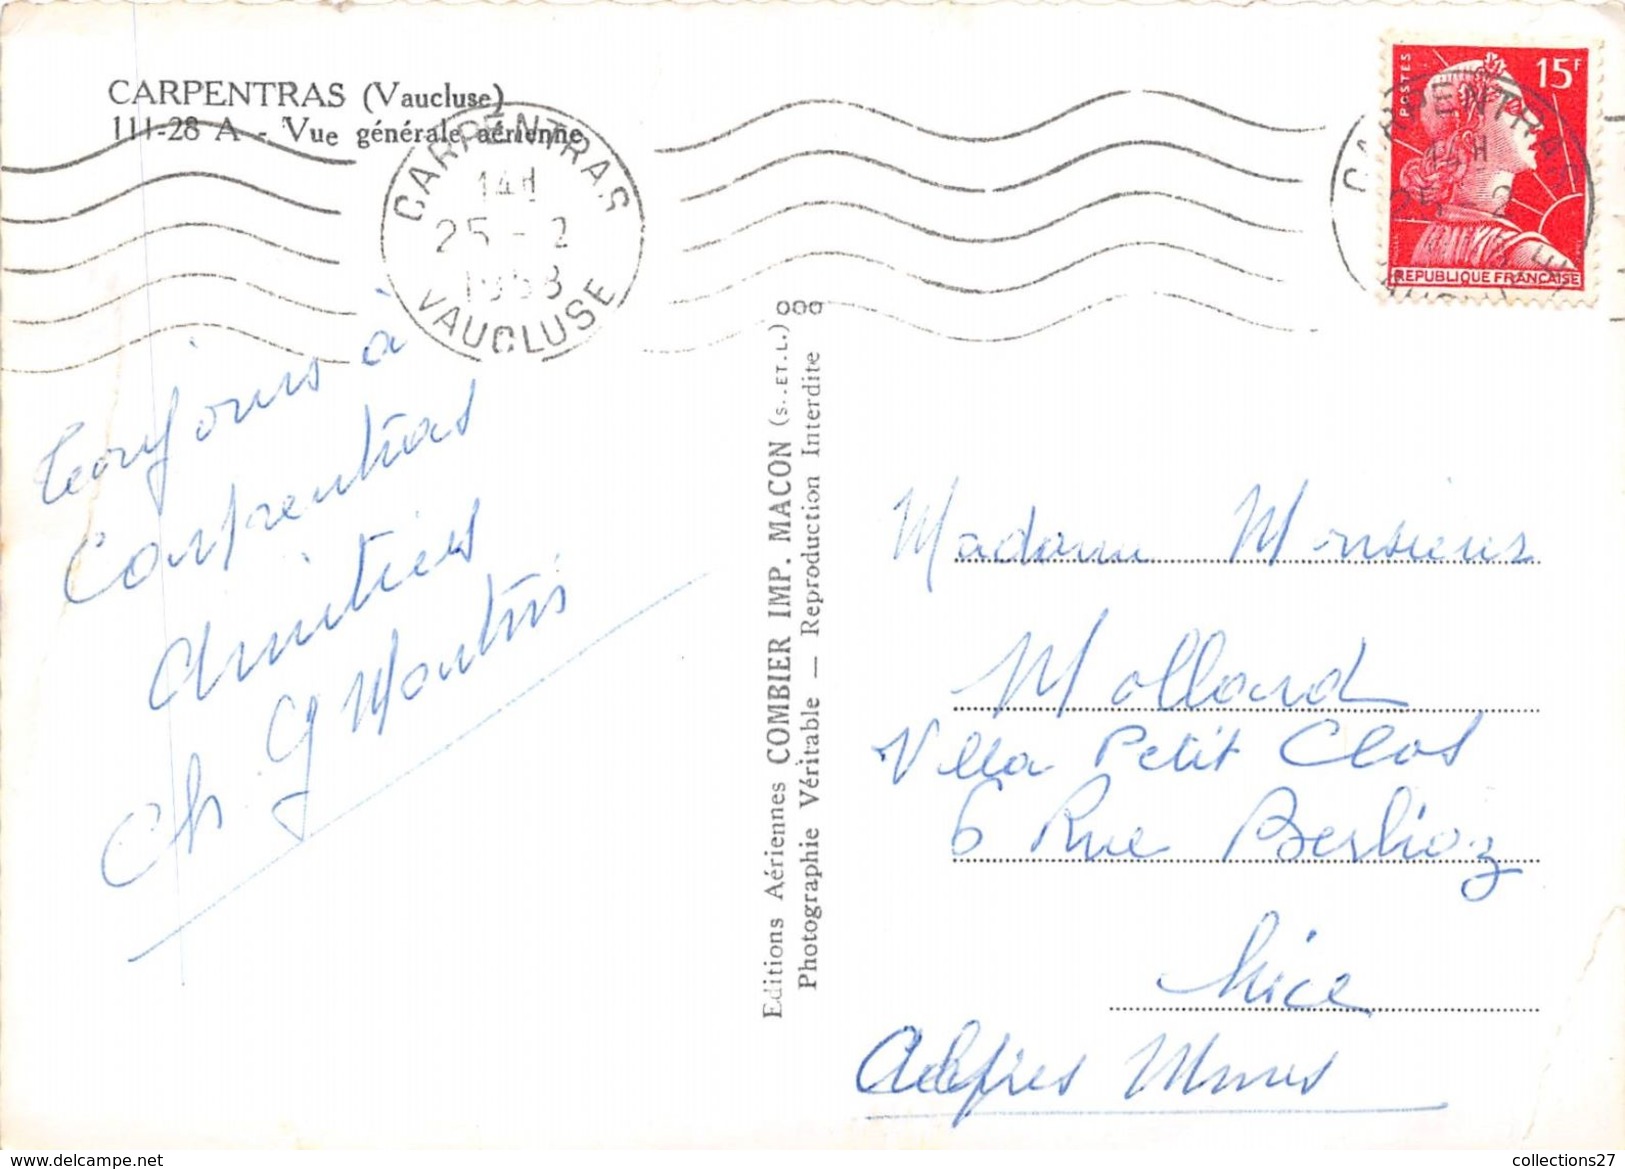 CARPENTRAS (Vaucluse)
111-28 A - Vue générale aérienne
CARPENTRAS
14H
25 - 2
1958
VAUCLUSE
POSTES
15F
REPUBLIQUE FRANÇAISE
CARPENTRAS
14H
25 2
Toujours à
Carpentras
Amitiés
Ch
Editions Aériennes COMBIER IMP. MACON (S.-ET-L.)
Photographie Véritable — Reproduction Interdite
Madame Monsieur
Mollard
Villa Petit Clos
6 Rue Berlioz
Nice
Alpes Mmes
delcampe.net
collections27